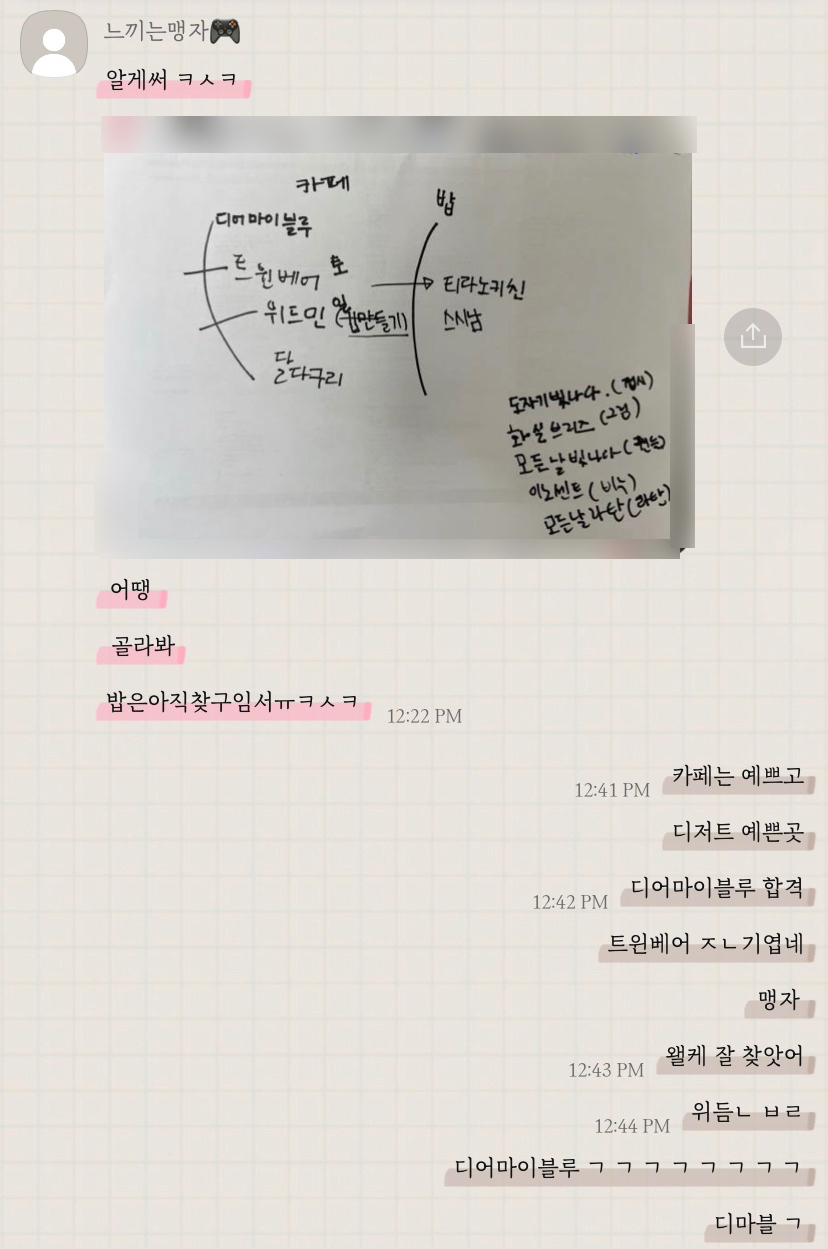 느끼는맹자🎮
알게써 ㅋㅅㅋ
카페
디어마이블루
트윈베어 토
위드민 일 만들기)
달다구리
밥
티라노키친
스시남
도자기빛나다.(접시)
화실브리즈 (그림)
모든날빛나다(
이노센트(비누)
모든날라탄(라탄)
어땡
골라봐
밥은아직찾구임서ㅠㅋㅅㅋ
12:22 PM
카페는 예쁘고
12:41 PM
디저트 예쁜곳
디어마이블루 합격
12:42 PM
트윈베어 ㅈㄴ기엽네
맹자
왤케 잘 찾앗어
12:43 PM
위듬ㄴ ㅂㄹ
12:44 PM
디어마이블루 ㄱ ㄱ ㄱ ㄱ ㄱ ㄱ ㄱ ㄱ
디마블 ㄱ